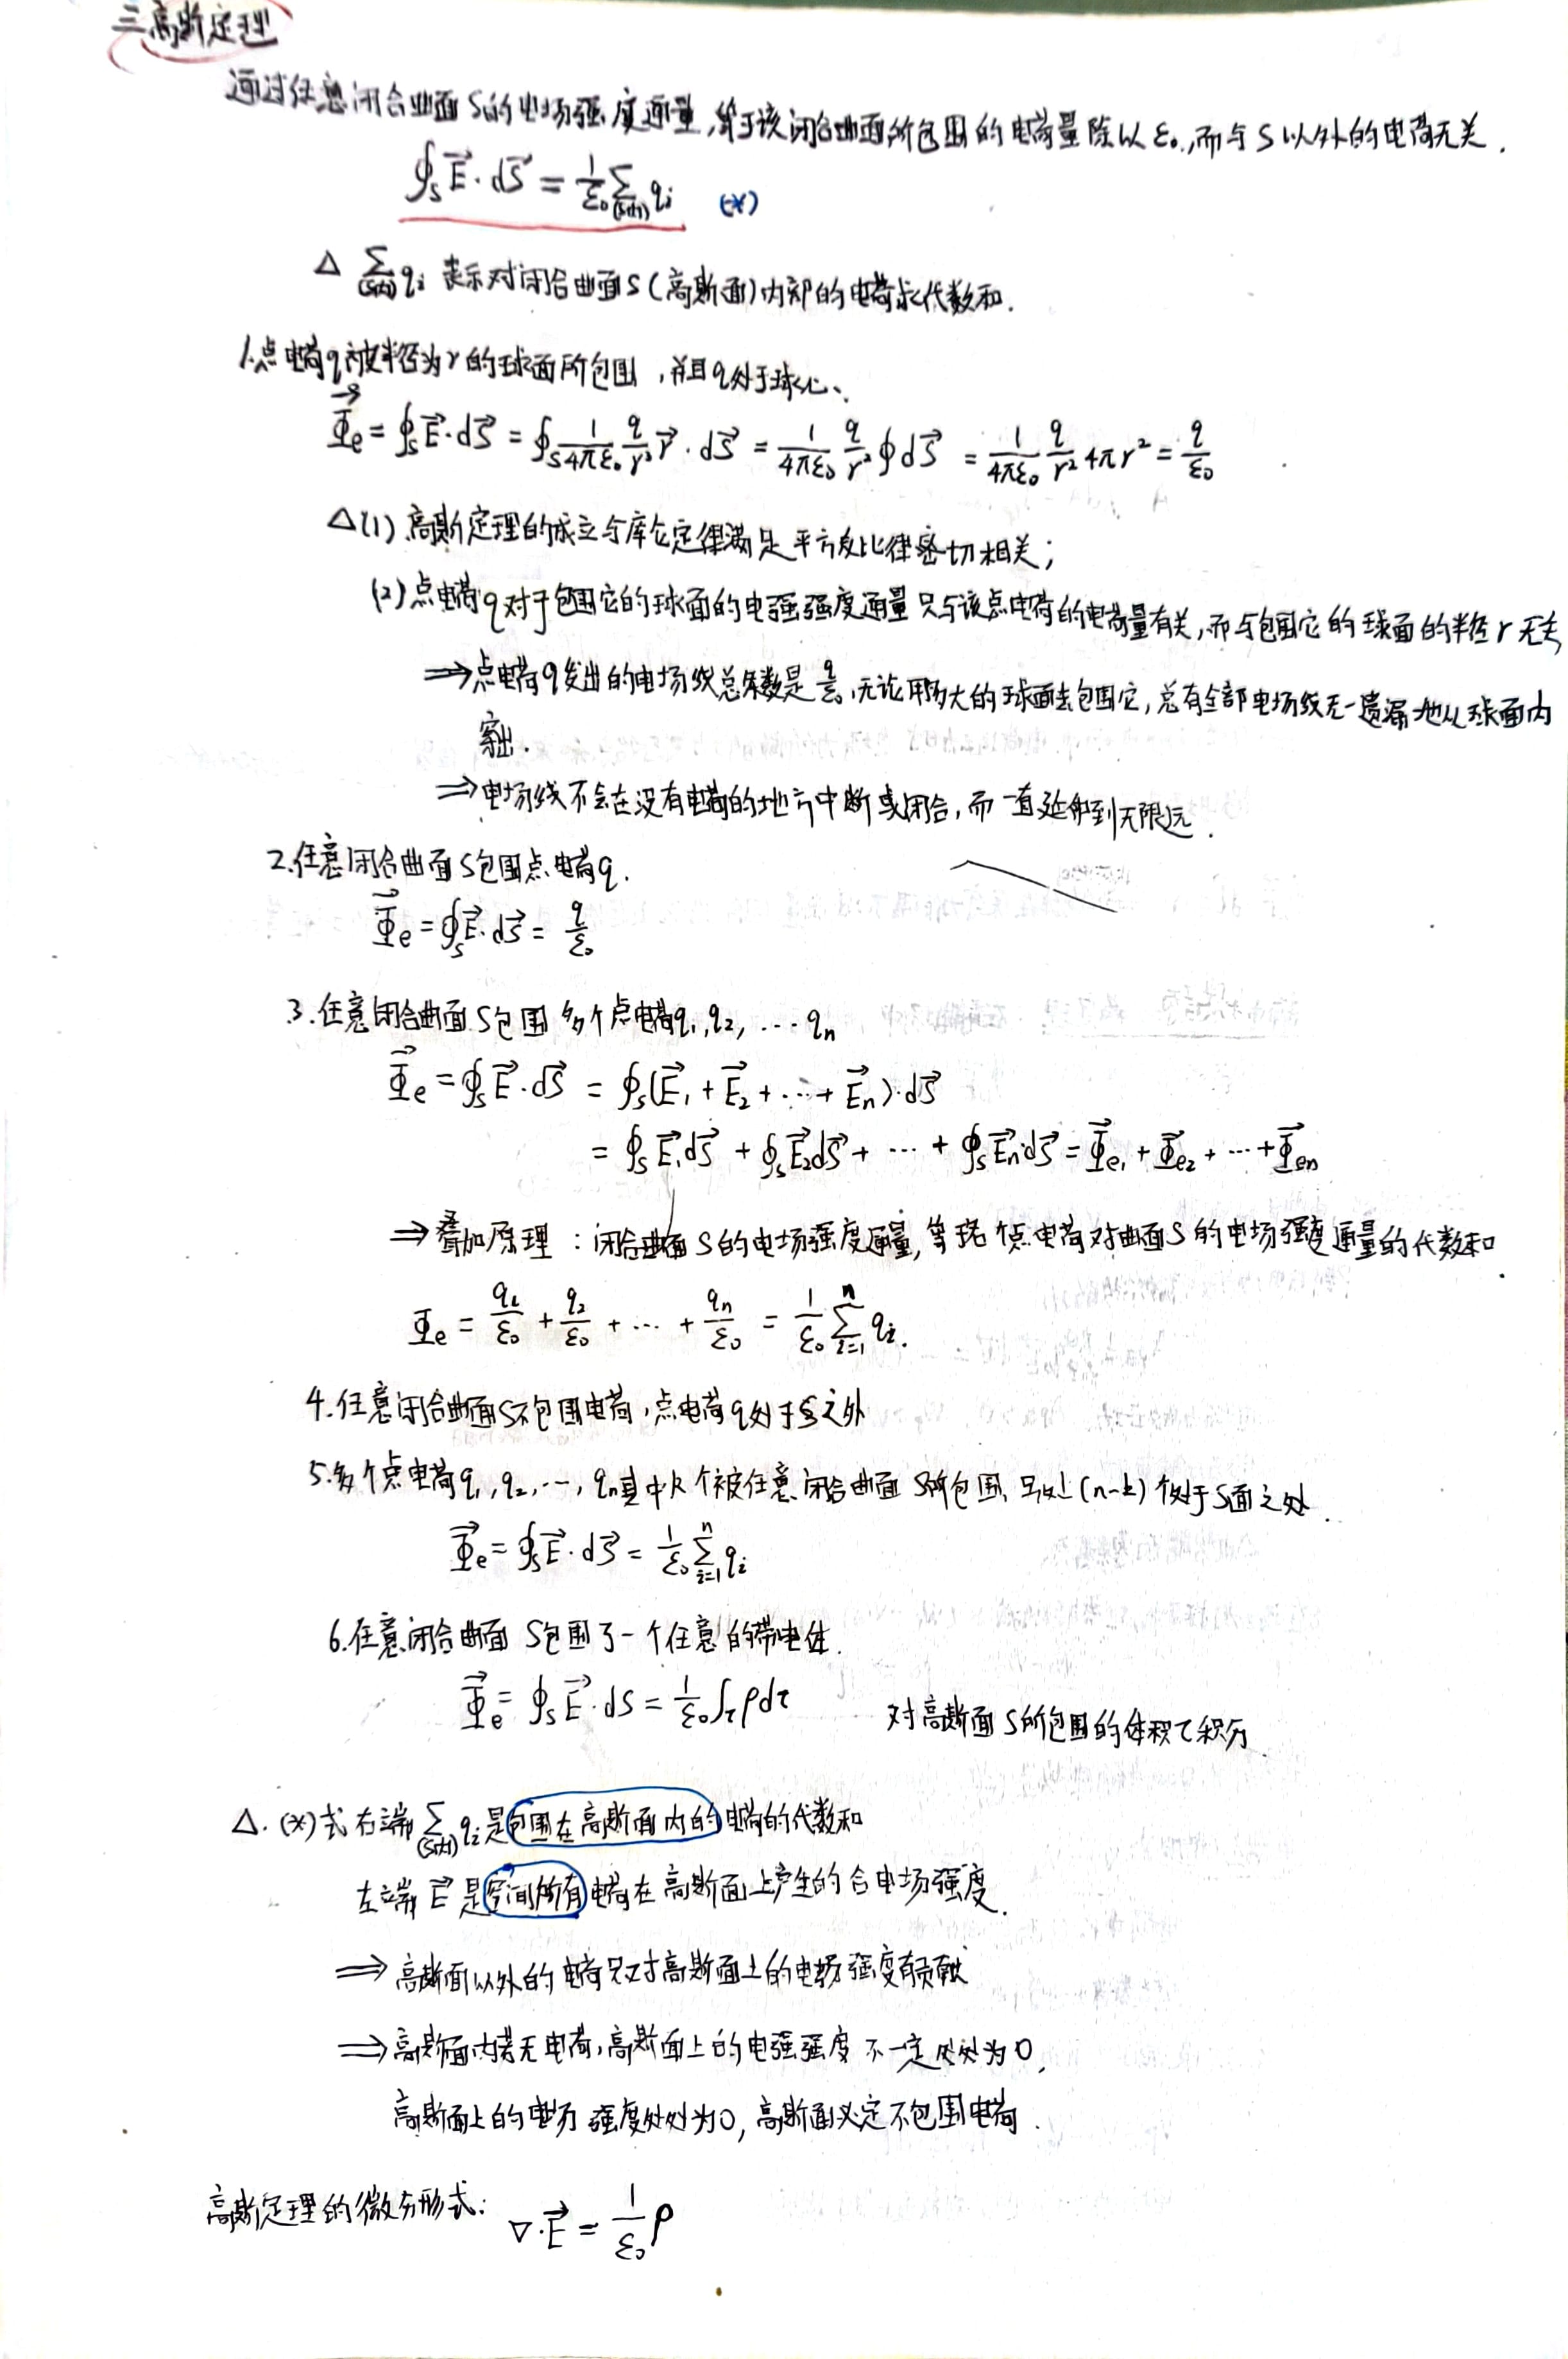 三 高斯定理
通过任意闭合曲面S的电场强度通量,等于该闭合曲面所包围的电荷量除以ε₀,而与S以外的电荷无关.
∮ₛE⃗·dS⃗ = 1/ε₀ ∑(S内) qᵢ (*)
△ ∑(S内) qᵢ 表示对闭合曲面S(高斯面)内部的电荷求代数和.
1.点电荷q被半径为r的球面所包围,并且q处于球心、
Φ⃗e = ∮ₛE⃗·dS⃗ = ∮ₛ 1/4πε₀ q/r³ r⃗·dS⃗ = 1/4πε₀ q/r² ∮dS⃗ = 1/4πε₀ q/r² 4πr² = q/ε₀
△(1)高斯定理的成立与库仑定律满足平方反比律密切相关;
(2)点电荷q对于包围它的球面的电强强度通量只与该点电荷的电荷量有关,而与包围它的球面的半径r无关
⇒点电荷q发出的电场线总条数是q/ε₀,无论用多大的球面去包围它,总有全部电场线无一遗漏地从球面内
穿出.
⇒电场线不会在没有电荷的地方中断或闭合,而一直延伸到无限远.
2.任意闭合曲面S包围点电荷q.
Φ⃗e = ∮ₛE⃗·dS⃗ = q/ε₀
3.任意闭合曲面S包围多个点电荷q₁,q₂,…qₙ
Φ⃗e = ∮ₛE⃗·dS⃗ = ∮ₛ(E⃗₁+E⃗₂+…+E⃗ₙ)·dS⃗
= ∮ₛE⃗₁dS⃗ + ∮ₛE⃗₂dS⃗ + … + ∮ₛE⃗ₙ·dS⃗ = Φ⃗e₁ + Φ⃗e₂ + … + Φ⃗eₙ
⇒叠加原理:闭合曲面S的电场强度通量,等于各个点电荷对曲面S的电场强度通量的代数和.
Φe = q₁/ε₀ + q₂/ε₀ + … + qₙ/ε₀ = 1/ε₀ ∑ⁿᵢ₌₁ qᵢ.
4.任意闭合曲面S不包围电荷,点电荷q处于S之外
5.多个点电荷q₁,q₂,…,qₙ其中k个被任意闭合曲面S所包围,另外(n-k)个处于S面之处.
Φ⃗e = ∮ₛE⃗·dS⃗ = 1/ε₀ ∑ⁿᵢ₌₁ qᵢ
6.任意闭合曲面S包围了一个任意的带电体.
Φ⃗e = ∮ₛE⃗·dS = 1/ε₀ ∫τ ρdτ 对高斯面S所包围的体积τ积分.
△.(*)式右端∑(S内) qᵢ是包围在高斯面内的电荷的代数和
左端E⃗是空间所有电荷在高斯面上产生的合电场强度.
⇒高斯面以外的电荷只对高斯面上的电场强度有贡献
⇒高斯面内若无电荷,高斯面上的电强强度不一定处处为0,
高斯面上的电场强度处处为0,高斯面必定不包围电荷.
高斯定理的微分形式: ∇·E⃗ = 1/ε₀ ρ